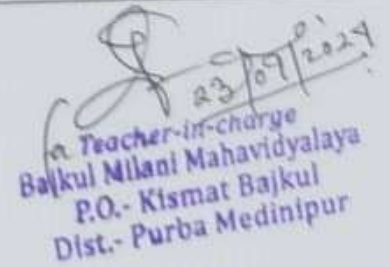 23/09/2024
Teacher-in-charge
Bajkul Milani Mahavidyalaya
P.O.- Kismat Bajkul
Dist.- Purba Medinipur